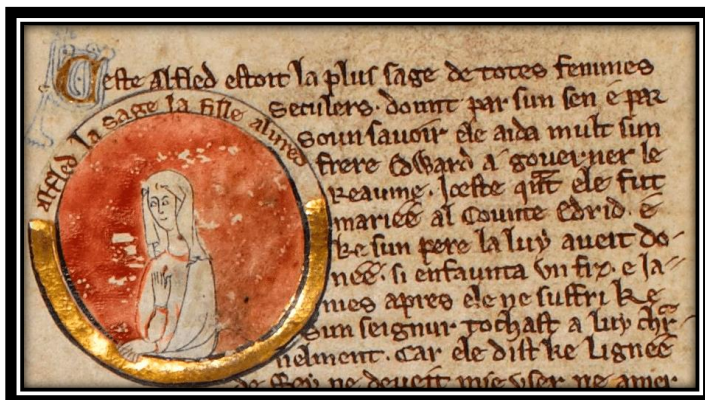 Ceste Alfled estoit la plus sage de totes femmes
seculers. dount par sun sen e par
soun savoir ele aida mult sun
frere Edward a governer le
Reaume. Iceste qnt ele fut
mariee al Counte Edrid. e
ke sun pere la luy aveit do-
nee. si enfaunta vn fiz. e ia-
mes apres ele ne suffri ke
sun seignur tochast a luy chr-
nelment. Car ele dist ke lignee
de Roy ne deveit mie vser ne amer
alfled la sage la fille alured